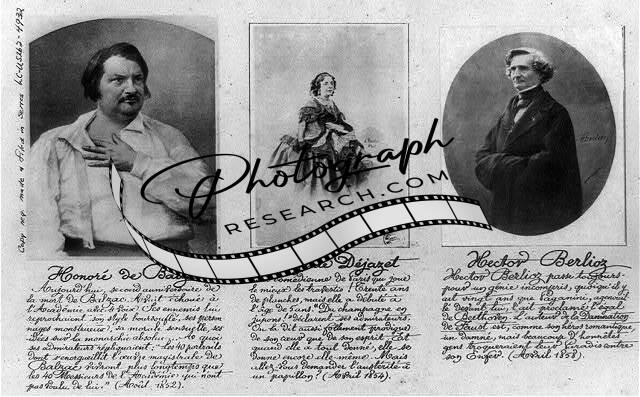 Copy neg made & filed in series LC-USZ62-4932
Photograph
RESEARCH.COM
Honoré de
Aujourd'hui, second anniversaire de
la mort de Balzac. A huit échoué à
l'Académie avec 2 voix! Ces ennemis lui
reprochaient son style boursouflé, ses person
nages monstrueux, sa morale sensuelle, ses
idées sur la monarchie absolue,... À quoi
ses admirateurs répliquaient: "40 portraits
dont s'enorgueillit l'œuvre magistrale de
Balzac vivront plus longtemps que
les 40 Messieurs de l'Académie qui n'ont
pas voulu de lui." (Août 1852).
Déjazet
comédienne de Paris qui joue
le mieux les travestis! Trente ans
de planches, mais elle a débuté à
l'âge de 5 ans! "Du champagne en
jupons!" déclarent ses admirateurs.
On la dit aussi follement prodigue
de son cœur que de son esprit. Car
quand elle a tout donné, elle se
donne encore elle-même. Mais
allez vous demander l'austérité à
un papillon? (Avril 1854).
Hector Berlioz
Hector Berlioz passe toujours
pour un génie incompris, quoiqu'il y
ait vingt ans que Paganini, agenouil
lé devant lui, l'ait proclamé l'égal
de Beethoven. L'auteur de la Damnation
de Faust est, comme son héros romantique
un damné, mais beaucoup d'honnêtes
gens troqueraient leur Paradis contre
son Enfer. (Avril 1858).